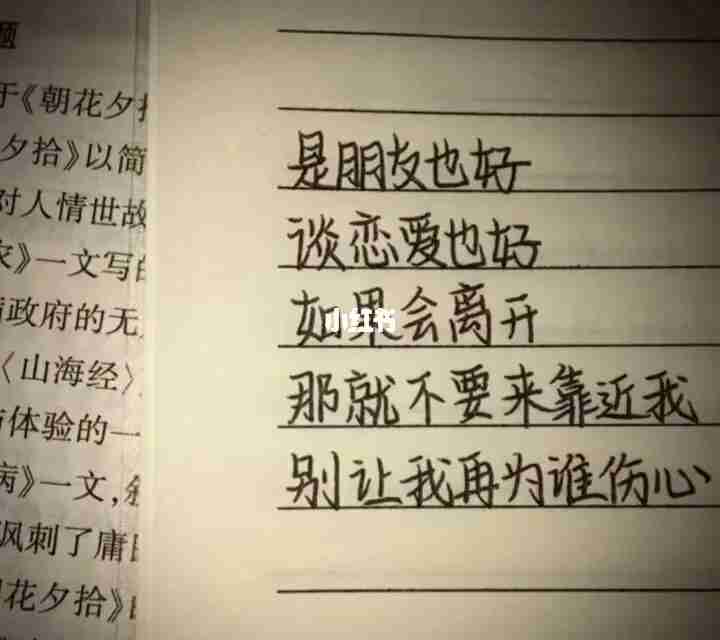 题
于《朝花夕拾
夕拾》以简
对人情世故
》一文写的
政府的无
《山海经》
体验的一
病》一文,
风刺了庸
花夕拾》
是朋友也好
谈恋爱也好
如果会离开
那就不要来靠近我
别让我再为谁伤心
小红书